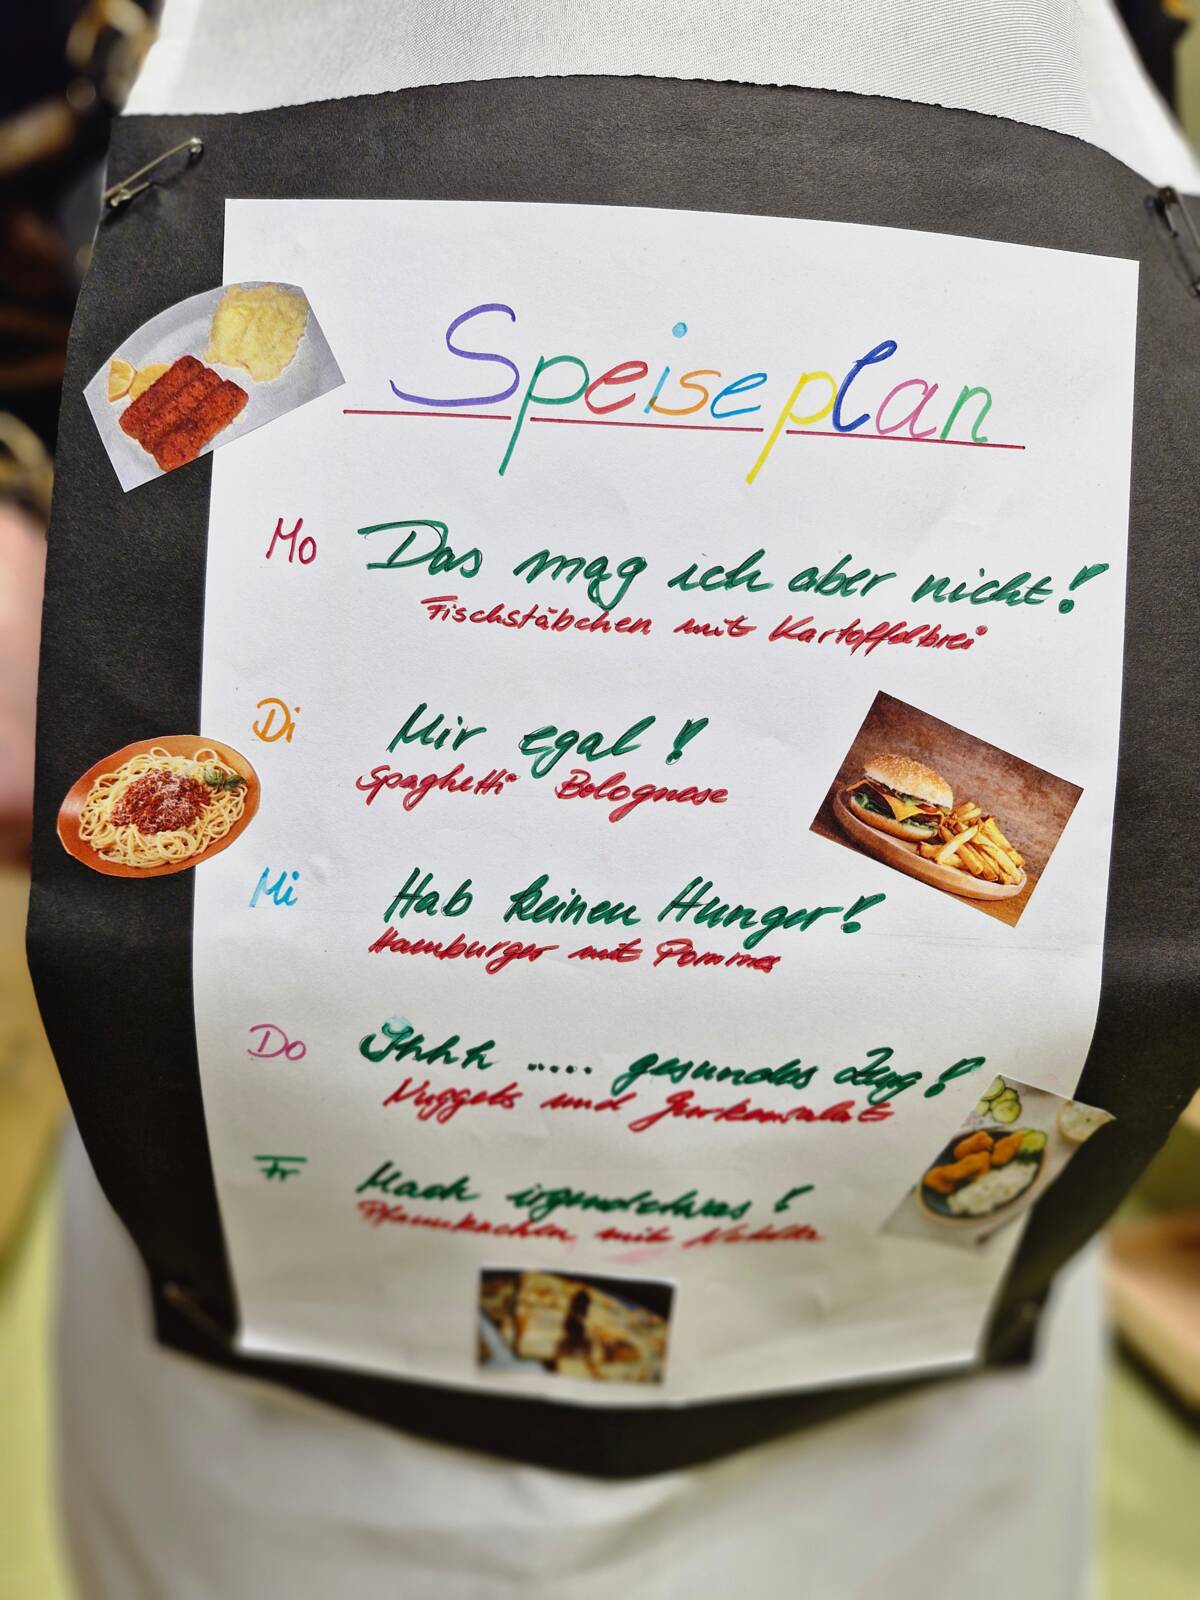 Speiseplan
Mo Das mag ich aber nicht!
Fischstäbchen mit Kartoffelbrei
Di Mir egal!
Spaghetti Bolognese
Mi Hab keinen Hunger!
Hamburger mit Pommes
Do Ihhh ..... gesundes Zeug!
Nuggets und Gurkensalat
Fr Mach irgendetwas!
Pfannkuchen mit Nutella